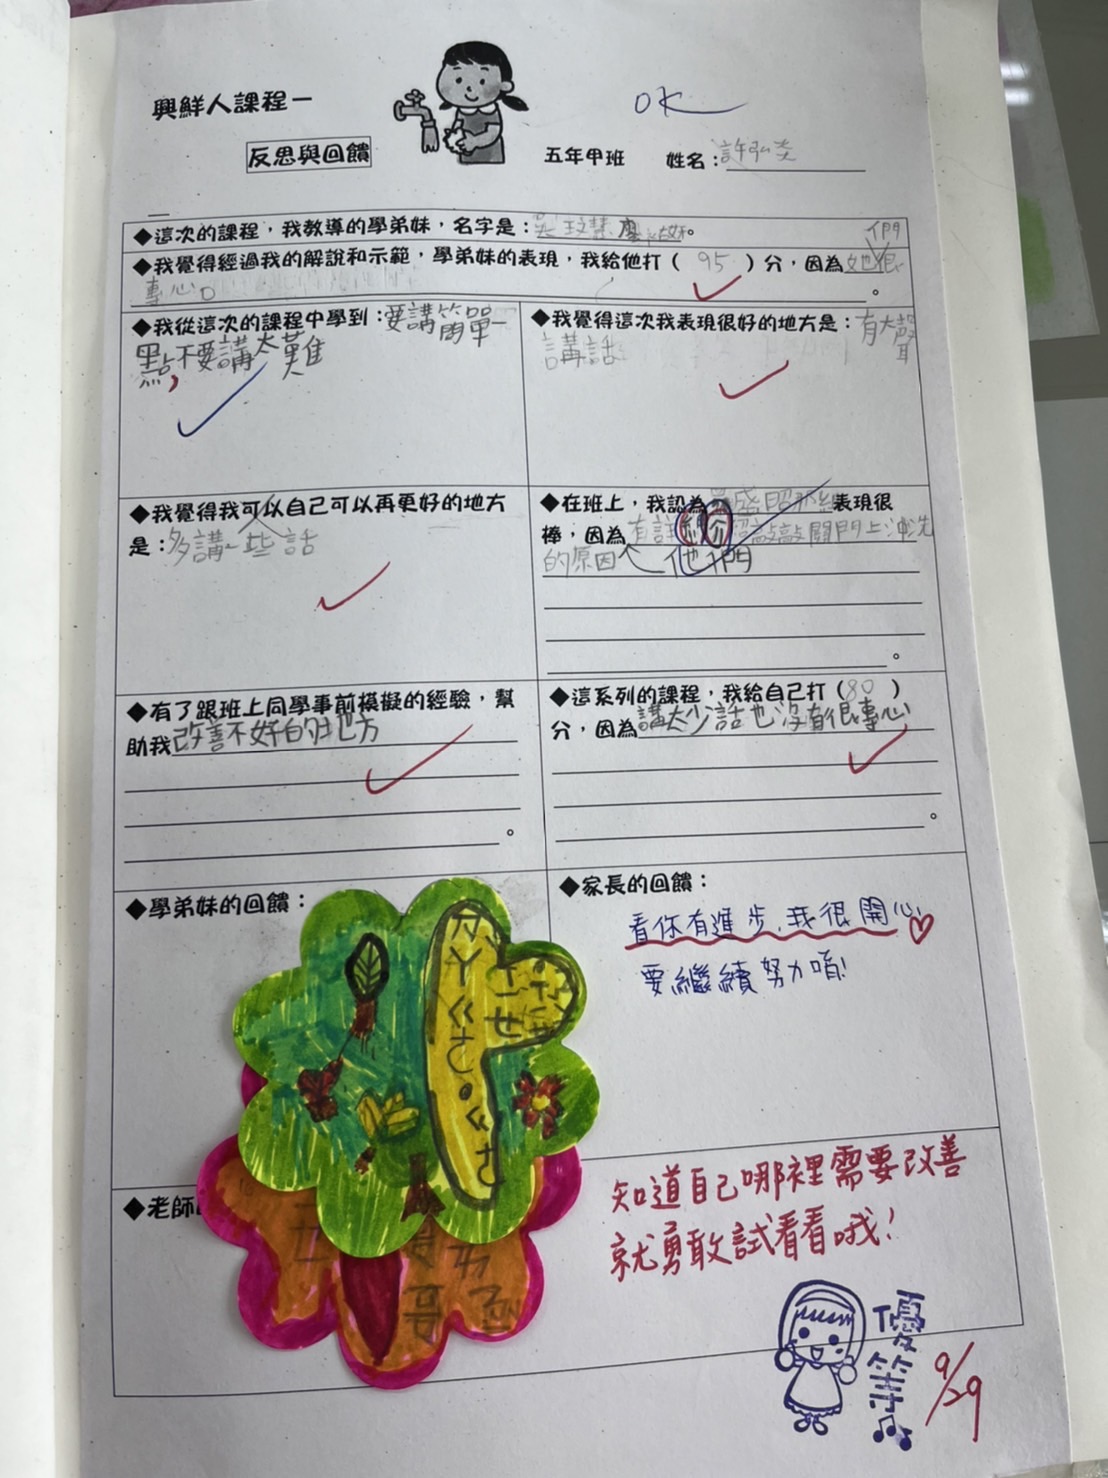 興鮮人課程－
OK
反思與回饋
五年甲班 姓名：許
◆這次的課程，我教導的學弟妹，名字是：
們
◆我覺得經過我的解說和示範，學弟妹的表現，我給他打（95）分，因為她很
專心。
◆我從這次的課程中學到：要講簡單一
點，不要講太難
◆我覺得這次我表現很好的地方是：有大聲
講話
◆我覺得我可以自己可以再更好的地方
是：多講一些話
◆在班上，我認為 表現很
棒，因為有
的原因 他們
◆有了跟班上同學事前模擬的經驗，幫
助我改善不好的地方
◆這系列的課程，我給自己打（80）
分，因為講太少話也沒有很專心
◆學弟妹的回饋：
◆家長的回饋：
看你有進步，我很開心
要繼續努力唷！
◆老師
知道自己哪裡需要改善
就勇敢試看看哦！
優等
9/29